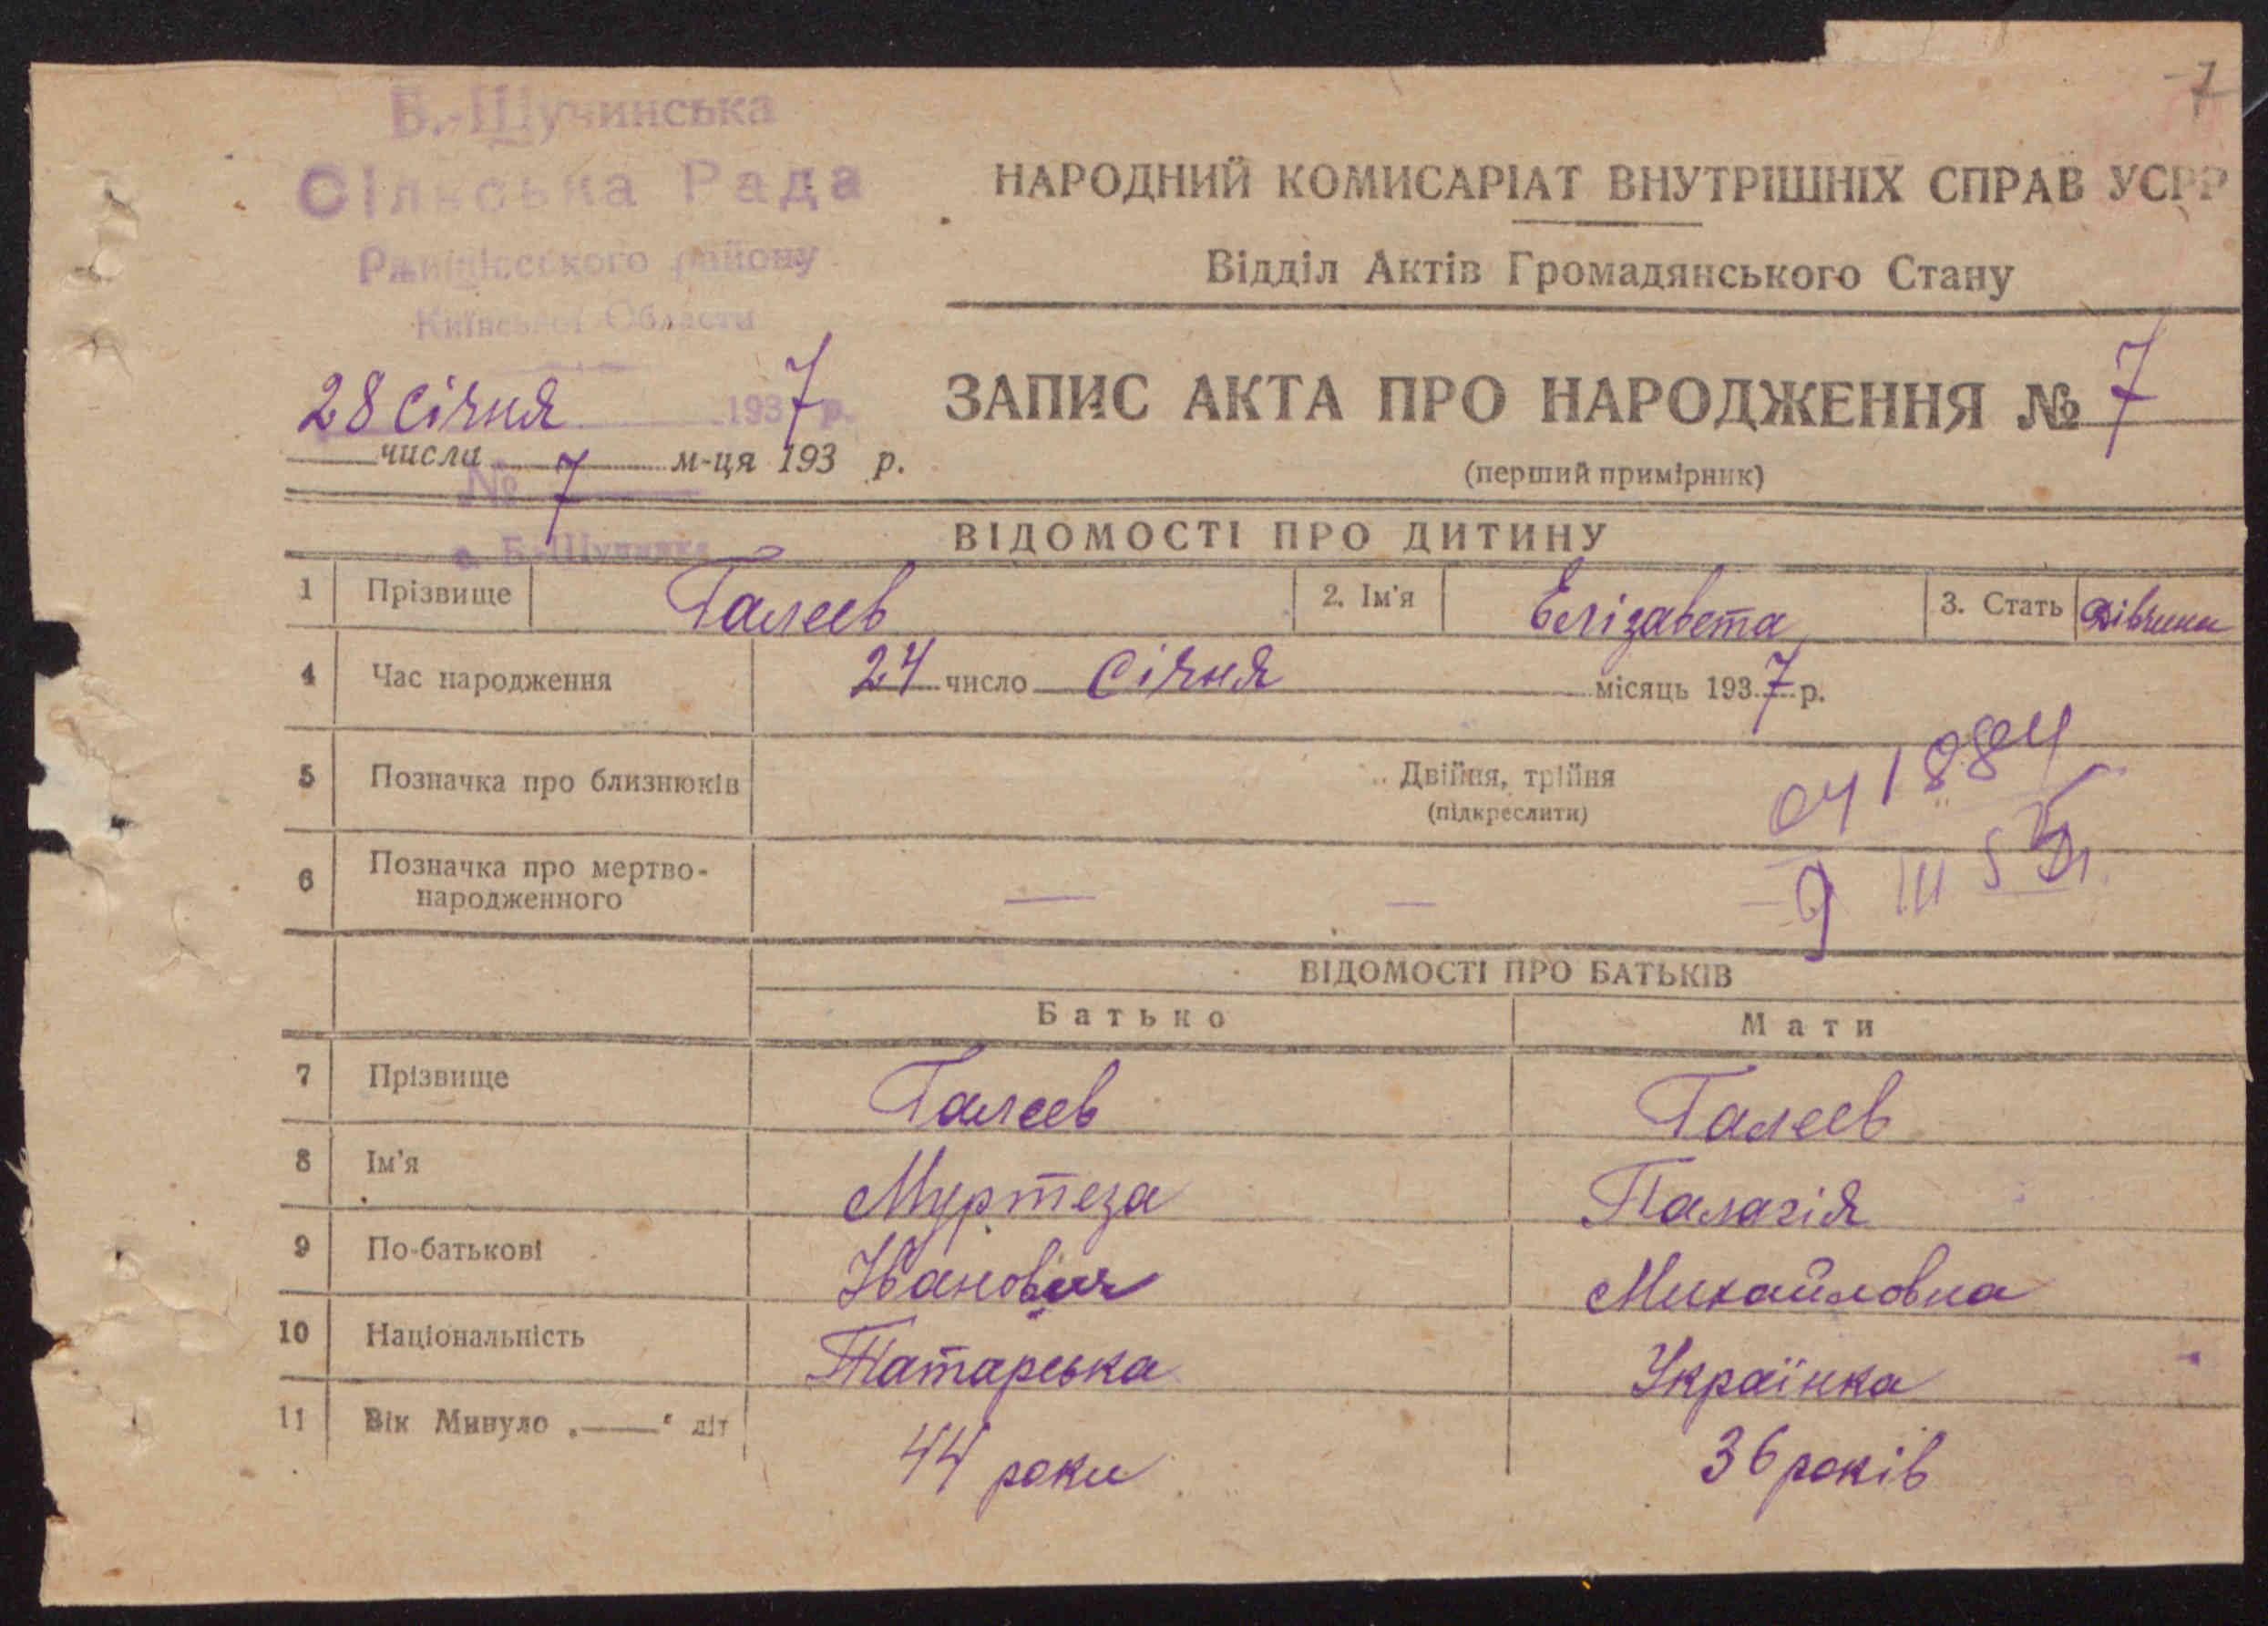 7
Б.-Щучинська
Сільська Рада
Ржищівського району
Київської Области
НАРОДНИЙ КОМИСАРІАТ ВНУТРІШНІХ СПРАВ УСРР
Відділ Актів Громадянського Стану
28 січня 1937 р.
числа м-ця 193 р.
№ 7
с. Б-Щучинка
ЗАПИС АКТА ПРО НАРОДЖЕННЯ № 7
(перший примірник)
ВІДОМОСТІ ПРО ДИТИНУ
1 Прізвище Галеев 2. Ім'я Елізавета 3. Стать Дівчина
4 Час народження 24 число Січня місяць 1937 р.
5 Позначка про близнюків Двійня, трійня
(підкреслити)
6 Позначка про мертво-
народженного — —
9 III 5
ВІДОМОСТІ ПРО БАТЬКІВ
Батько Мати
7 Прізвище Галеев Галеев
8 Ім'я Муртеза Палагія
9 По-батькові Іванович Михайловна
10 Національність Татарська Українка
11 Вік Минуло „——“ літ 44 роки 36 років